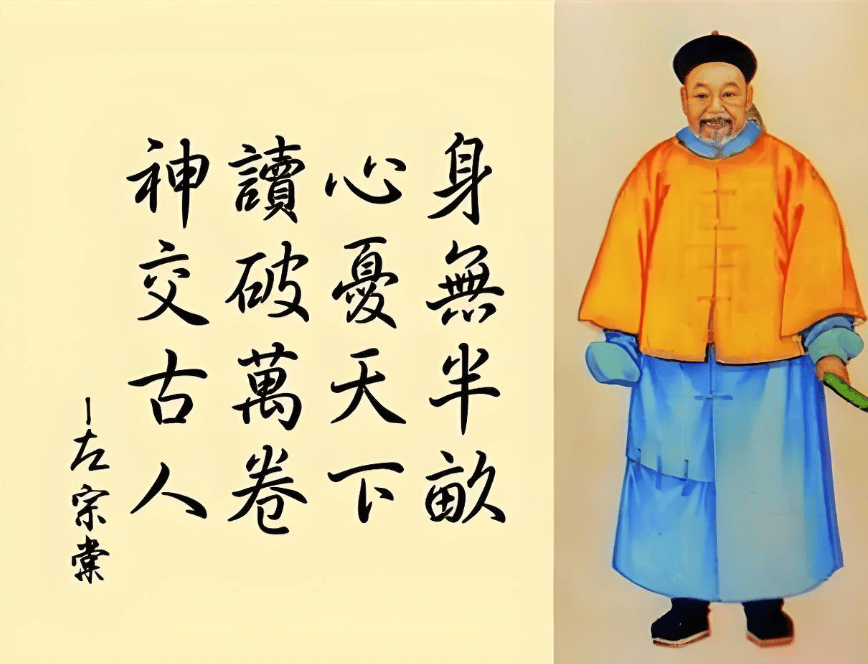 身無半畝
心憂天下
讀破萬卷
神交古人
-左宗棠